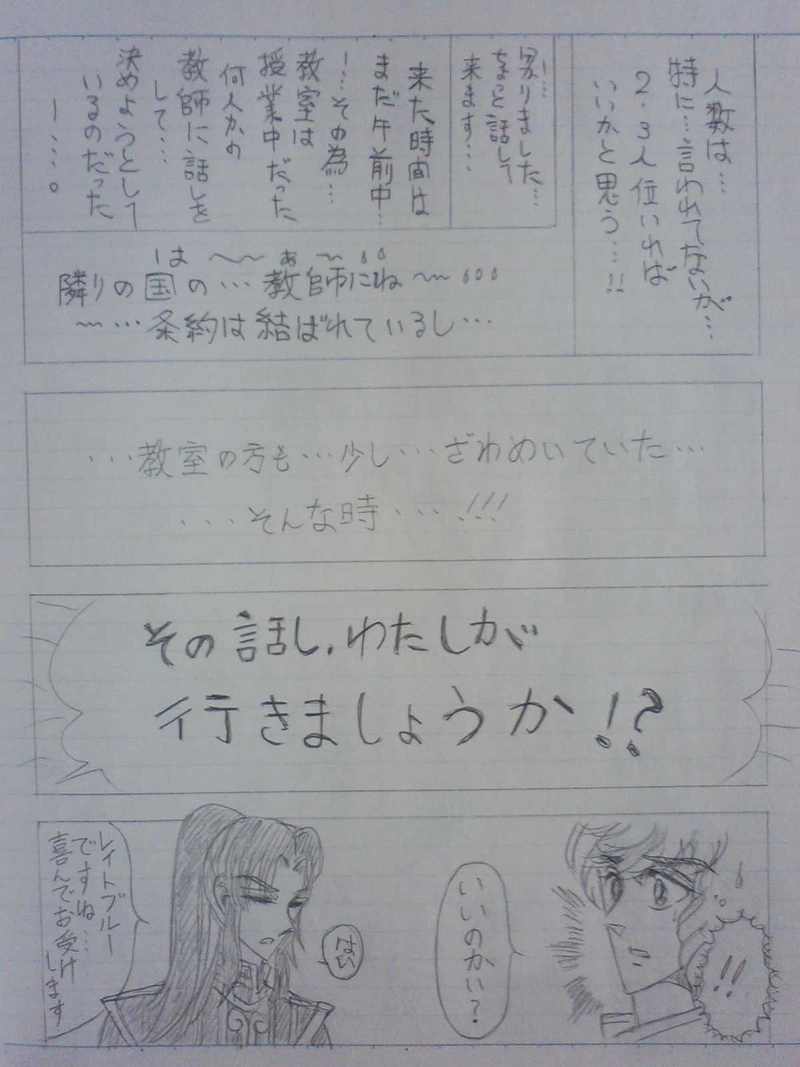 人数は…
特に…言われてないが…
２・３人位いれば
いいかと思う…!!
ー…
分りました…
ちょっと話して
来ます…
来た時間は
まだ午前中…
ー…その為…
教室は
授業中だった
何人かの
教師に話しを
して…
決めようとして
いるのだった
ー…。
は〜〜ぁ〜
隣りの国の…教師にね〜
〜…条約は結ばれているし…
…教室の方も…少し…ざわめいていた…
…そんな時…!!!
その話し、わたしが
行きましょうか!?
!!
いいのかい？
はい
レイトブルー
ですね…
喜んでお受け
します